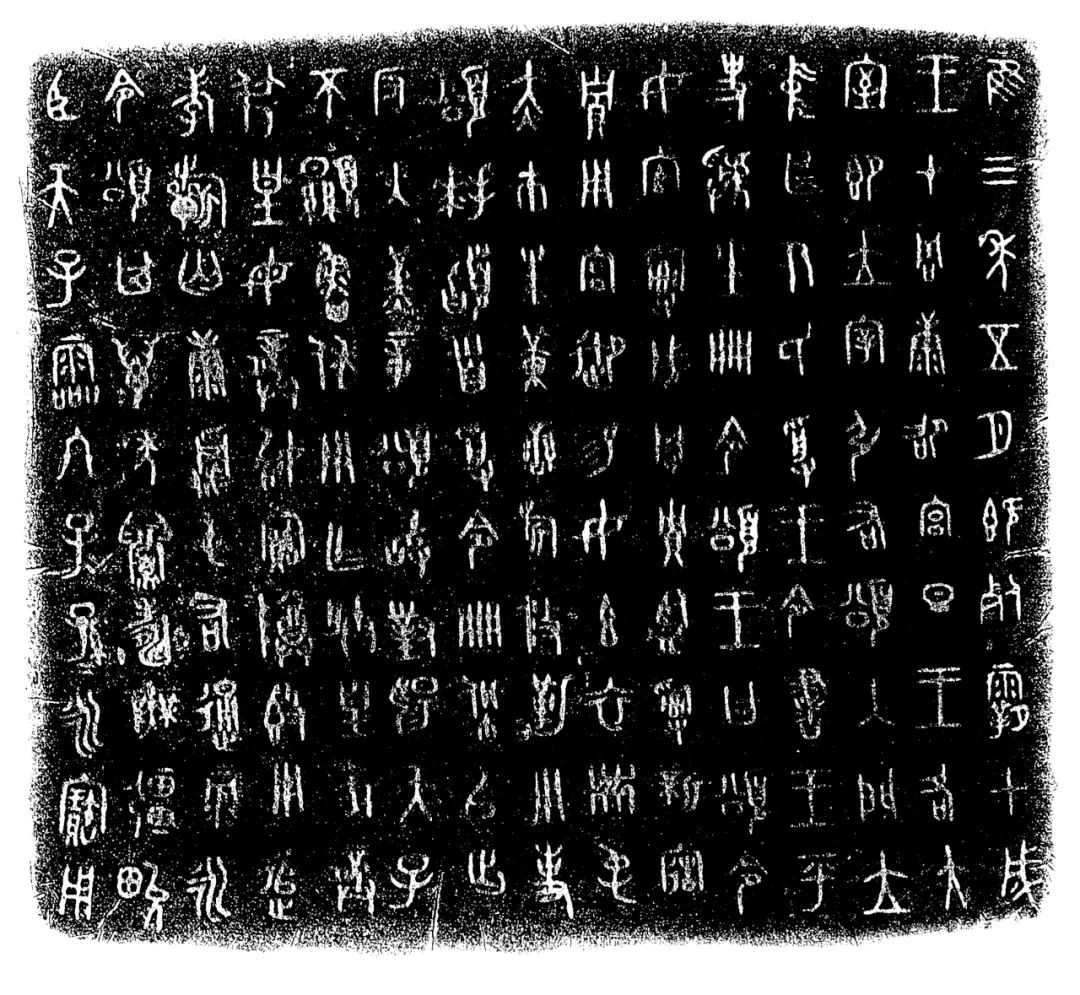 隹三年五月既死霸甲戌
王才周康卲宮旦王各大
室即立宰弘右頌入門立
中廷尹氏受王令書王乎
史虢生冊令頌王曰頌令
女官𤔲成周貯監𤔲新造
貯用宮御易女玄衣黹屯
赤巿朱黃䜌旂攸勒用事
頌拜𩒨首受令冊佩以出
反入堇章頌敢對揚天子
不顯魯休用乍朕皇考龏
弔皇母龏始寶尊鼎用追
孝𣄨匄康𠖠屯右通彔永
令頌其萬年眉壽無彊畯
臣天子霝冬子孫永寶用